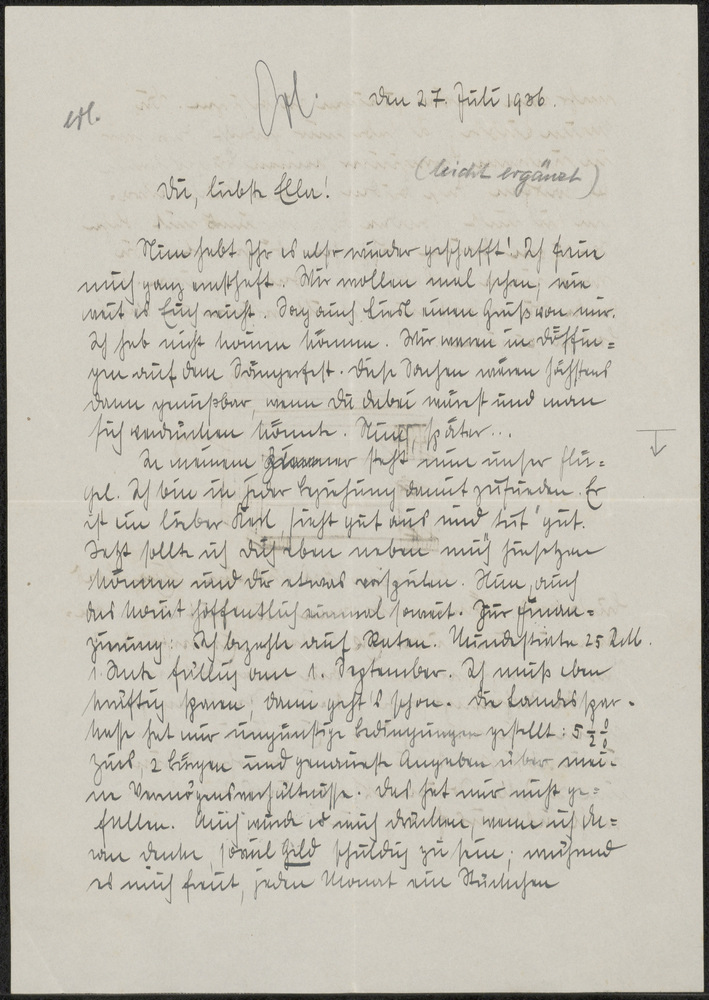 den 27. Juli 1936.
(leicht ergänzt)
Du, liebste Ella!
Nun habt Ihr es also wieder geschafft! Ich freue
mich ganz ernsthaft. Wir wollen mal sehen, wie
weit es Euch reicht. Sag auch Liesl einen Gruß von mir.
Ich hab nicht kommen können. Wir waren in Döffin=
gen auf dem Sängerfest. Diese Sachen wären höchstens
dann genießbar, wenn Du dabei wärest und man
sich verdrücken könnte. Nun, später...
In meinem Zimmer steht nun unser Flü=
gel. Ich bin in jeder Beziehung damit zufrieden. Er
ist ein lieber Kerl, sieht gut aus und tut gut.
Jetzt sollte ich Dich eben neben mich hinsetzen
können und Dir etwas vorspielen. Nun, auch
das kommt hoffentlich einmal soweit. Zur Finan=
zierung: Ich bezahle auf Raten. Mindestrate 25 RM.
1. Rate fällig am 1. September. Ich muß eben
kräftig sparen, dann geht's schon. Die Landesspar=
kasse hat mir ungünstige Bedingungen gestellt: 5 1/2 %
Zins, 2 Bürgen und genaueste Angaben über mei=
ne Vermögensverhältnisse. Das hat mir nicht ge=
fallen. Auch würde es mich drücken, wenn ich da=
ran denke, soviel Geld schuldig zu sein; während
es mich freut, jeden Monat ein Stückchen